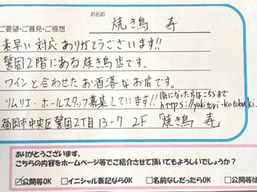 お名前
焼き鳥 寿
ご要望・ご意見・ご感想
素早い対応ありがとうございます!!
警固2階にある焼き鳥店です。
ワインと合わせたお洒落なお店です。
ソムリエ・ホールスタッフ募集しています!!
気になった方はこちらまで
https://yakitori-kotobuki.
福岡市中央区警固2丁目13-7 2F 「焼き鳥 寿」
ありがとうございます。
こちらの内容をホームページ等でご紹介させて頂いてもよろしいでしょうか?
公開等OK
イニシャル表記ならOK
名前なしだったらOK
公開等